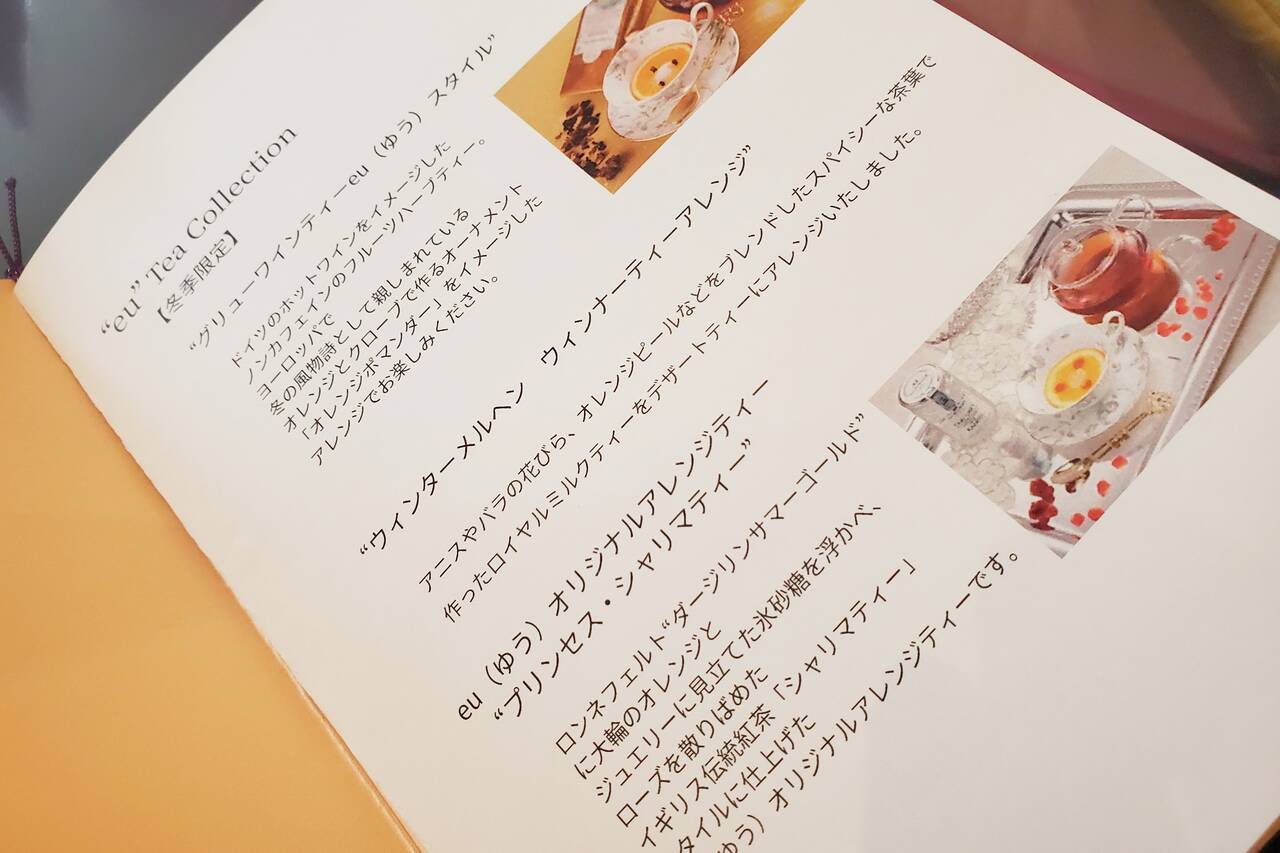 “eu” Tea Collection
【冬季限定】
“グリューワインティーeu（ゆう）スタイル”
ドイツのホットワインをイメージした
ノンカフェインのフルーツハーブティー。
ヨーロッパで
冬の風物詩として親しまれている
オレンジとクローブで作るオーナメント
「オレンジポマンダー」をイメージした
アレンジでお楽しみください。
“ウィンターメルヘン　ウィンナーティーアレンジ”
アニスやバラの花びら、オレンジピールなどをブレンドしたスパイシーな茶葉で
作ったロイヤルミルクティーをデザートティーにアレンジいたしました。
eu（ゆう）オリジナルアレンジティー
“プリンセス・シャリマティー”
ロンネフェルト“ダージリンサマーゴールド”
に大輪のオレンジと
ジュエリーに見立てた氷砂糖を浮かべ、
ローズを散りばめた
イギリス伝統紅茶「シャリマティー」
タイルに仕上げた
ゆう）オリジナルアレンジティーです。